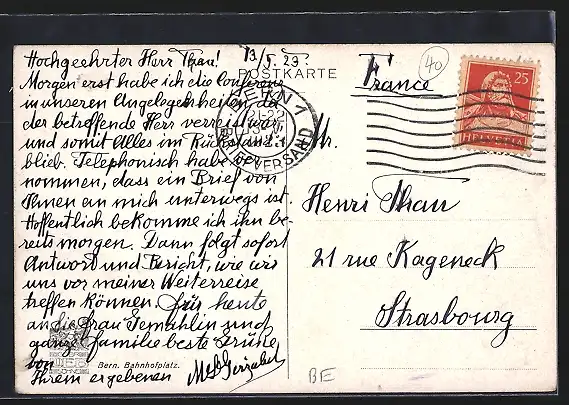 13/5. 23.
Hochgeehrter Herr Thau!
Morgen erst habe ich die Conferenz
in unseren Angelegenheiten, da
der betreffende Herr verreist war
und somit Alles im Rückstand
blieb. Telephonisch habe ver-
nommen, dass ein Brief von
Ihnen an mich unterwegs ist.
Hoffentlich bekomme ich ihn be-
reits morgen. Dann folgt sofort
Antwort und Bericht, wie wir
uns vor meiner Weiterreise
treffen können. Für heute
an die Frau Gemahlin und
ganze Familie beste Grüsse
von
Ihrem ergebenen
Bern. Bahnhofplatz.
POSTKARTE
BERN 1
BRIEFVERSAND
France
40
25
HELVETIA
Mr.
Henri Thau
21 rue Kageneck
Strasbourg
BE